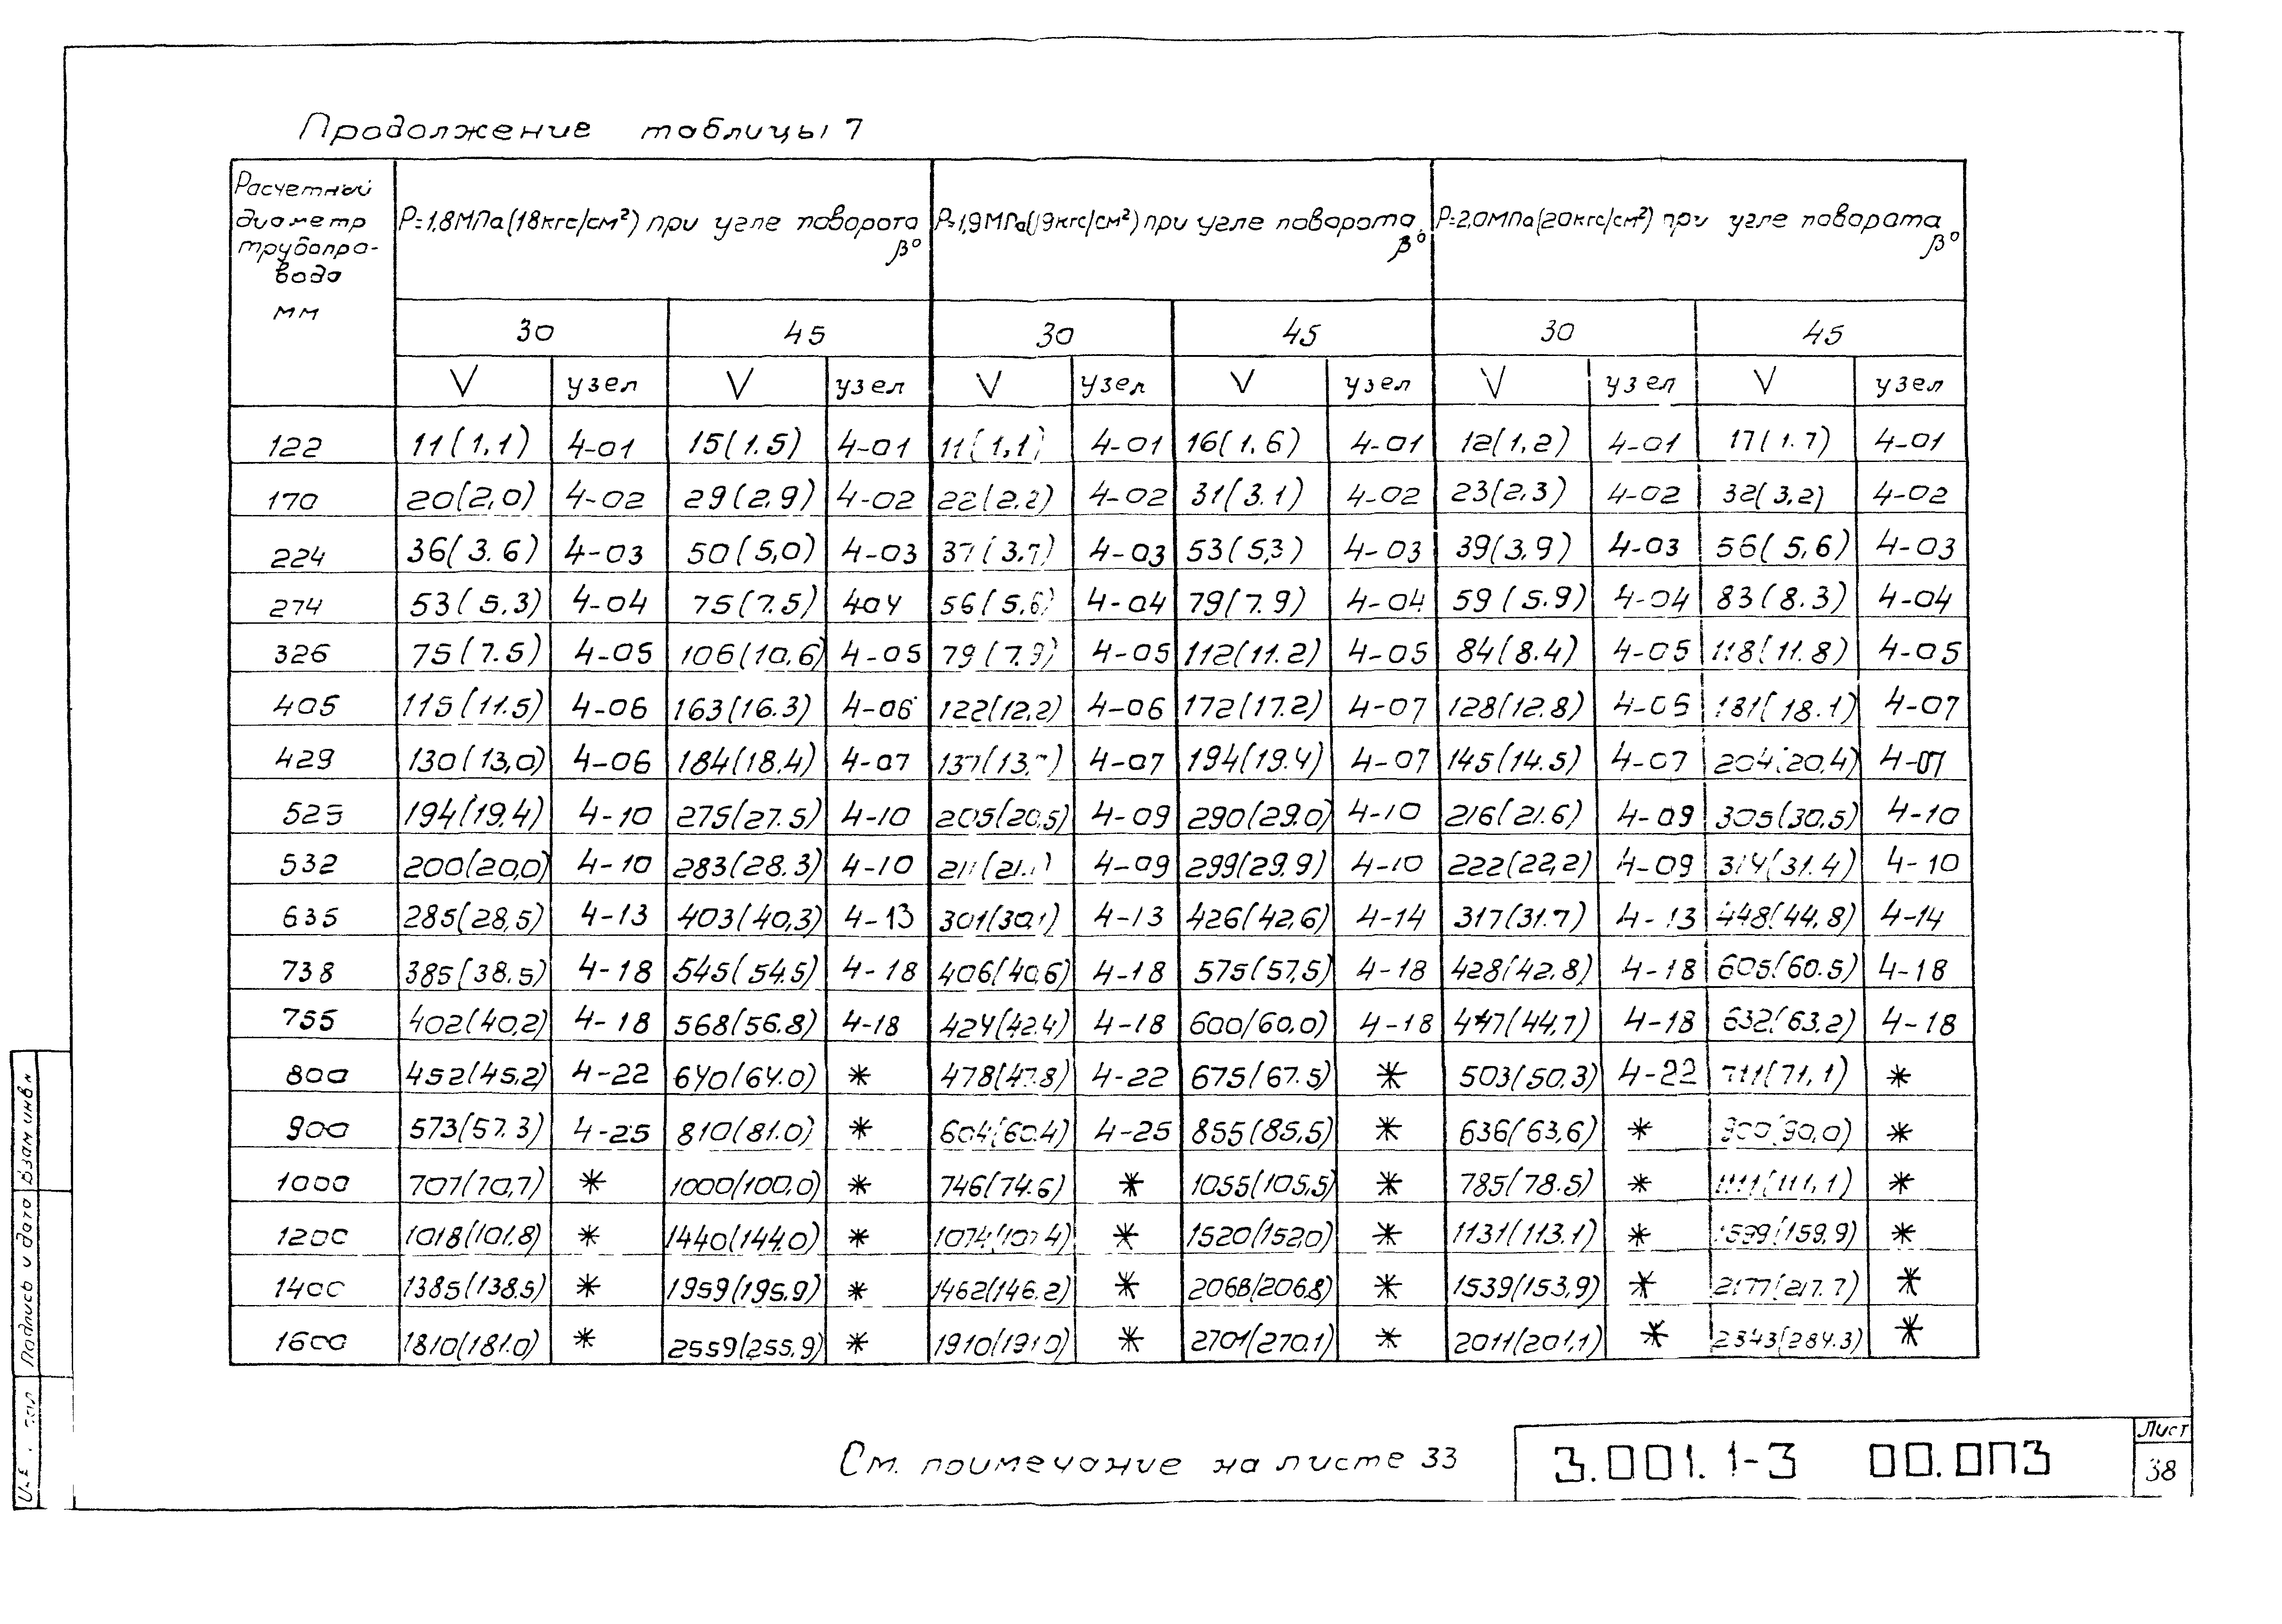 Продолжение таблицы 7
Расчетный диаметр трубопро-вода мм
P=1,8МПа(18кгс/см²) при угле поворота β°
P=1,9МПа(19кгс/см²) при угле поворота β°
P=2,0МПа(20кгс/см²) при угле поворота β°
30 45 30 45 30 45
V узел V узел V узел V узел V узел V узел
122 11(1,1) 4-01 15(1.5) 4-01 11(1,1) 4-01 16(1,6) 4-01 12(1,2) 4-01 17(1.7) 4-01
170 20(2,0) 4-02 29(2,9) 4-02 22(2,2) 4-02 31(3.1) 4-02 23(2,3) 4-02 32(3,2) 4-02
224 36(3.6) 4-03 50(5,0) 4-03 37(3,7) 4-03 53(5,3) 4-03 39(3,9) 4-03 56(5,6) 4-03
274 53(5.3) 4-04 75(7.5) 404 56(5,6) 4-04 79(7.9) 4-04 59(5.9) 4-04 83(8.3) 4-04
326 75(7.5) 4-05 106(10,6) 4-05 79(7.9) 4-05 112(11.2) 4-05 84(8.4) 4-05 118(11.8) 4-05
405 115(11.5) 4-06 163(16.3) 4-06 122(12,2) 4-06 172(17.2) 4-07 128(12.8) 4-06 181(18.1) 4-07
429 130(13,0) 4-06 184(18.4) 4-07 137(13,7) 4-07 194(19.4) 4-07 145(14.5) 4-07 204(20,4) 4-07
525 194(19,4) 4-10 275(27.5) 4-10 205(20,5) 4-09 290(29.0) 4-10 216(21.6) 4-09 305(30,5) 4-10
532 200(20,0) 4-10 283(28.3) 4-10 4-09 299(29.9) 4-10 222(22,2) 4-09 314(31.4) 4-10
635 285(28,5) 4-13 403(40,3) 4-13 301(30,1) 4-13 426(42,6) 4-14 317(31.7) 4-13 448(44,8) 4-14
738 385(38.5) 4-18 545(54.5) 4-18 406(40,6) 4-18 575(57,5) 4-18 428(42.8) 4-18 605(60.5) 4-18
755 402(40,2) 4-18 568(56.8) 4-18 424(42.4) 4-18 600(60,0) 4-18 447(44,7) 4-18 632(63,2) 4-18
800 452(45,2) 4-22 640(64.0) * 478(47.8) 4-22 675(67.5) * 503(50,3) 4-22 711(71,1) *
900 573(57.3) 4-25 810(81.0) * 604(60.4) 4-25 855(85,5) * 636(63,6) * 900(90,0) *
1000 707(70,7) * 1000(100,0) * 746(74.6) * 1055(105,5) * 785(78.5) * 1111(111,1) *
1200 1018(101.8) * 1440(144.0) * 1074(107.4) * 1520(152,0) * 1131(113.1) * 1599(159,9) *
1400 1385(138.5) * 1959(195.9) * 1462(146.2) * 2068(206.8) * 1539(153,9) * 2177(217.7) *
1600 1810(181.0) * 2559(255,9) * 1910(191.0) * 2701(270.1) * 2011(201,1) * 2343(284.3) *
См. примечание на листе 33
3.001.1-3 00.0ПЗ
Лист
38
Подпись и дата
Взам инв N